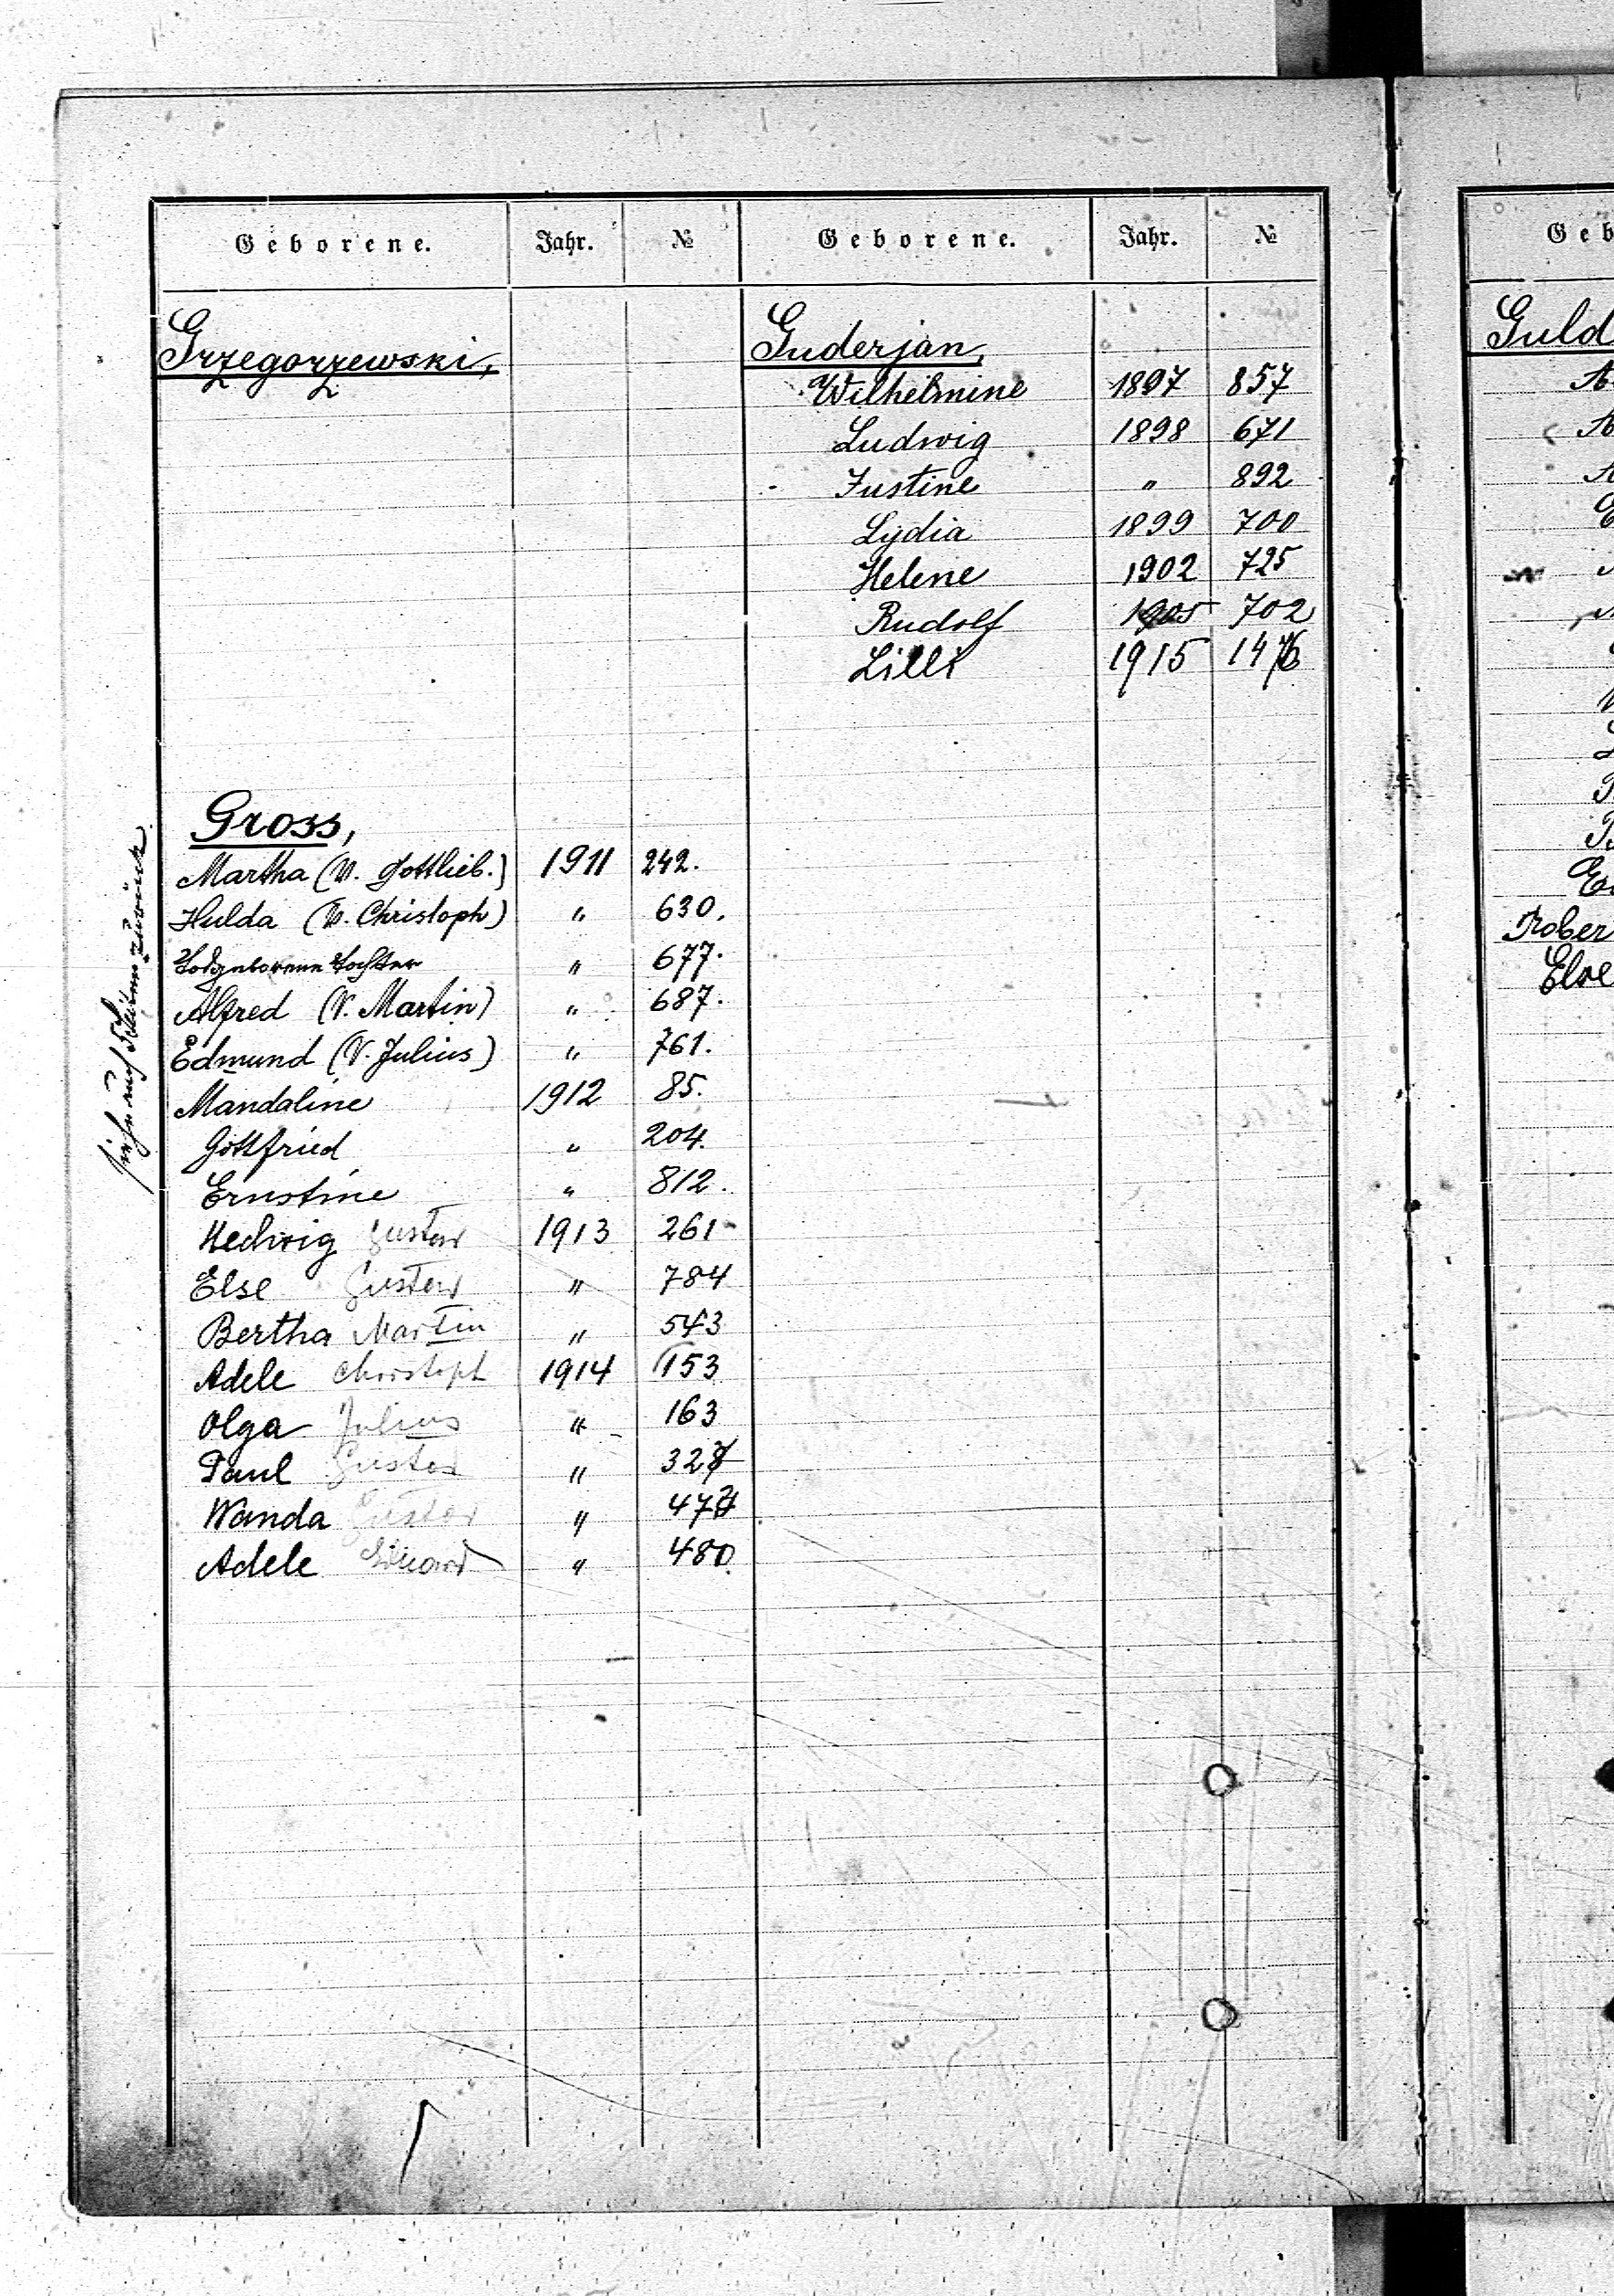 Geborene. Jahr. №
Grzegorzewski,
Gross,
Martha (V. Gottlieb.) 1911 242.
Hulda (V. Christoph) " 630.
Todgeborene Tochter " 677.
Alfred (V. Martin) " 687.
Edmund (V. Julius) " 761.
Mandaline 1912 85.
Gottfried " 204.
Ernstine " 812.
Hedwig Gustav 1913 261
Else Gustav " 784
Bertha Martin " 543
Adele Christoph 1914 153
Olga Julius " 163
Paul Gustav "
Wanda Gustav "
Adele Eduard " 480.
siehe auch zurück.
Geborene. Jahr. №
Guderjan,
Wilhelmine 1897 857
Ludwig 1898 671
Justine " 892
Lydia 1899 700
Helene 1902 725
Rudolf 1905 702
Lilli 1915 1476
Geb
Guld
A
A
A
E
Rober
Else